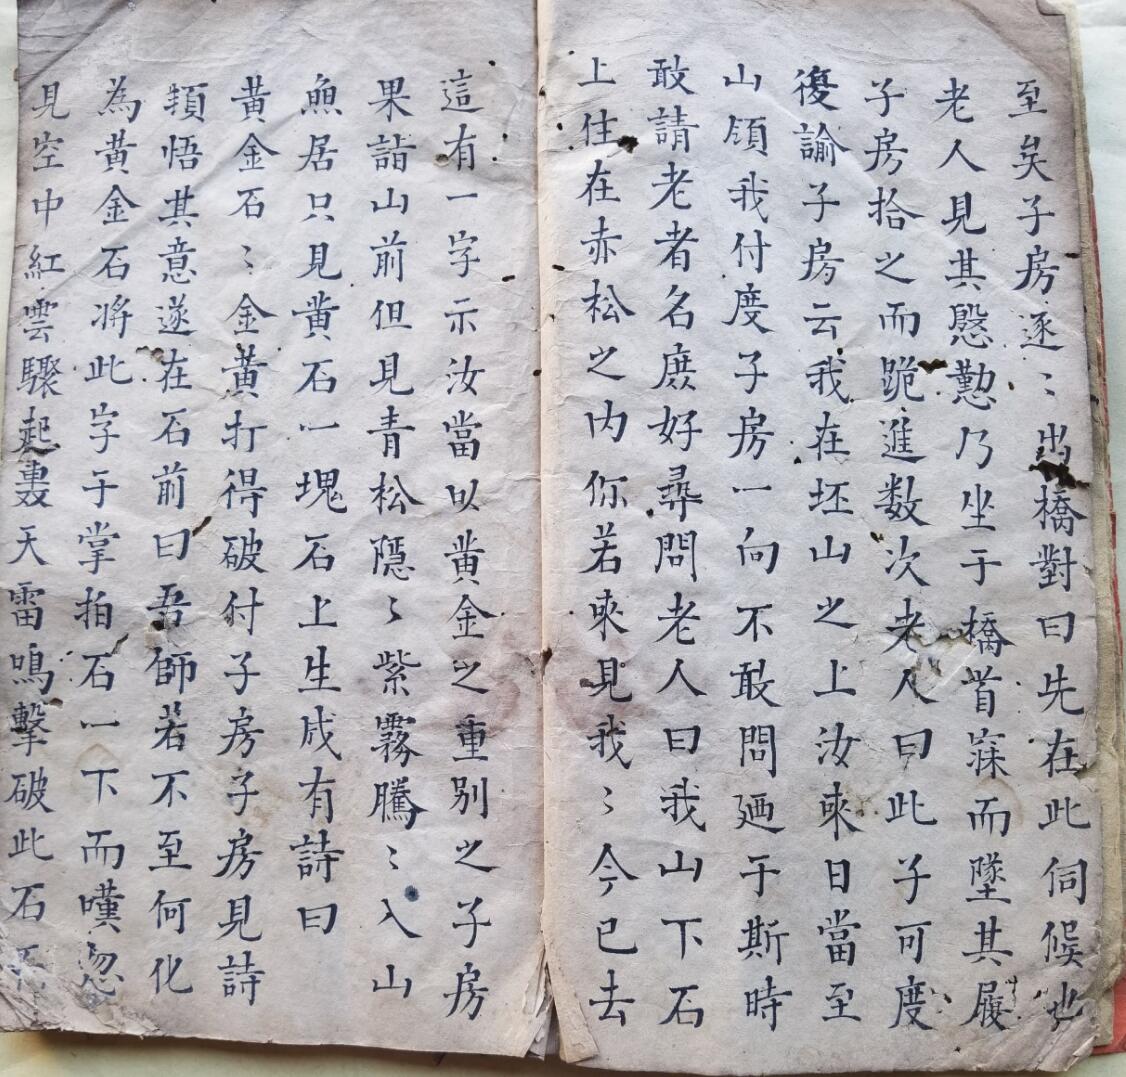 至矣子房逐〻出橋對曰先在此伺候也
老人見其慇懃乃坐于橋首寐而墜其履
子房拾之而跪進数次老人曰此子可度
復諭子房云我在坯山之上汝來日當至
山領我付度子房一向不敢問廼于斯時
敢請老者名庶好尋問老人曰我山下石
上住在赤松之内你若來見我〻今已去
這有一字示汝當以黄金之重别之子房
果詣山前但見青松隱〻紫霧騰〻入山
無居只見黄石一塊石上生成有詩曰
黄金石〻金黄打得破付子房子房見詩
頓悟其意遂在石前曰吾師若不至何化
為黄金石将此字于掌拍石一下而嘆忽
見空中紅雲驟起轟天雷鳴擊破此石